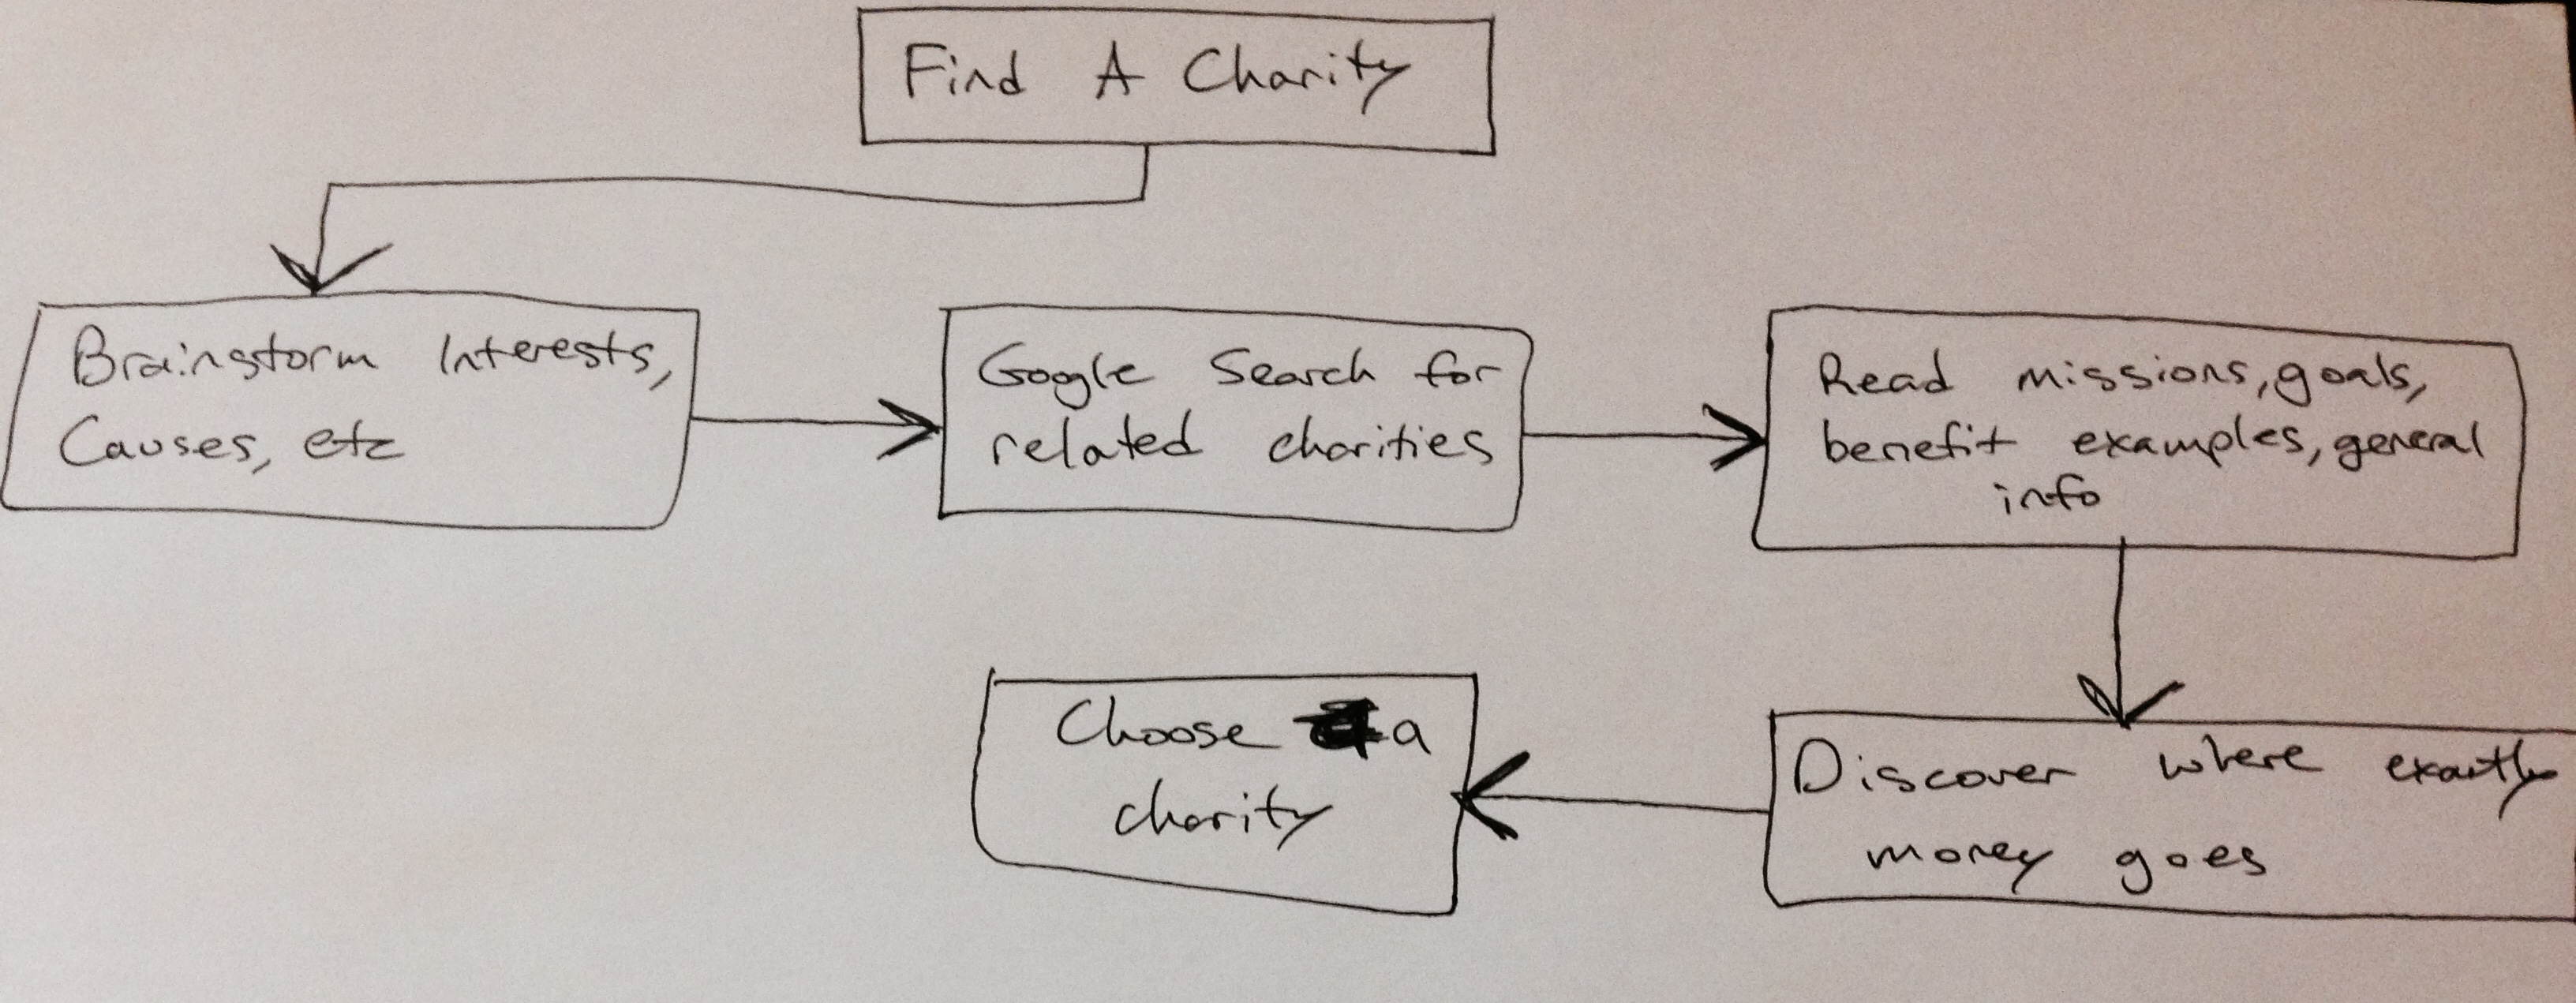 Find A Charity
Brainstorm Interests,
Causes, etc
Google Search for
related charities
Read missions, goals,
benefit examples, general
info
Discover where exactly
money goes
Choose a
charity